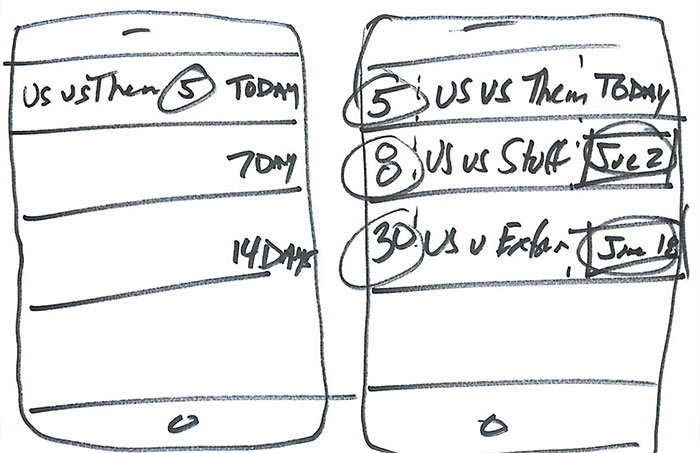 US vs Them 5 TODAY
7 DAY
14 DAYS
5 US VS Them TODAY
8 US vs Stuff June 2
30 US v June 18